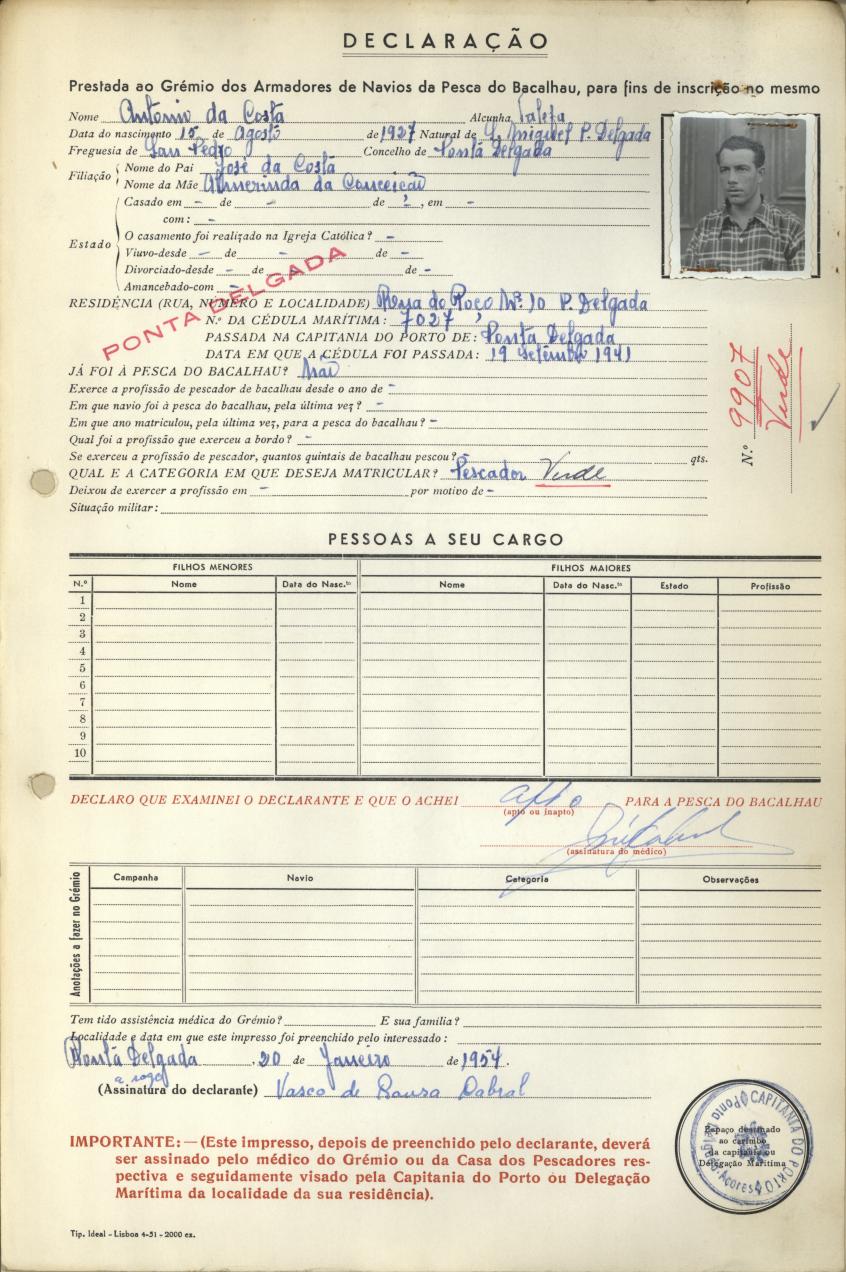 DECLARAÇÃO
Prestada ao Grémio dos Armadores de Navios da Pesca do Bacalhau, para fins de inscrição no mesmo
Nome Antonio da Costa Alcunha
Data do nascimento 15 de Agosto de 1927 Natural de S. Miguel P. Delgada
Freguesia de San Pedro Concelho de Ponta Delgada
Filiação
Nome do Pai José da Costa
Nome da Mãe Almerinda da Conceição
Estado
Casado em - de - de -, em -
com: -
O casamento foi realizado na Igreja Católica? -
Viuvo-desde - de - de -
Divorciado-desde - de - de -
Amancebado-com -
PONTA DELGADA
RESIDÊNCIA (RUA, NÚMERO E LOCALIDADE) Nº. 10 P. Delgada
N.º DA CÉDULA MARÍTIMA: 7027
PASSADA NA CAPITANIA DO PORTO DE: Ponta Delgada
DATA EM QUE A CÉDULA FOI PASSADA: 19 Setembro 1941
JÁ FOI À PESCA DO BACALHAU? Não
Exerce a profissão de pescador de bacalhau desde o ano de -
Em que navio foi à pesca do bacalhau, pela última vez? -
Em que ano matriculou, pela última vez, para a pesca do bacalhau? -
Qual foi a profissão que exerceu a bordo? -
Se exerceu a profissão de pescador, quantos quintais de bacalhau pescou? - qts.
QUAL E A CATEGORIA EM QUE DESEJA MATRICULAR? Pescador Verde
Deixou de exercer a profissão em - por motivo de -
Situação militar:
N.º 9907
Verde
PESSOAS A SEU CARGO
FILHOS MENORES FILHOS MAIORES
N.º Nome Data do Nasc.to Nome Data do Nasc.to Estado Profissão
1
2
3
4
5
6
7
8
9
10
DECLARO QUE EXAMINEI O DECLARANTE E QUE O ACHEI apto PARA A PESCA DO BACALHAU
(apto ou inapto)
(assinatura do médico)
Anotações a fazer no Grémio
Campanha Navio Categoria Observações
Tem tido assistência médica do Grémio? E sua família?
Localidade e data em que este impresso foi preenchido pelo interessado:
Ponta Delgada, 20 de Janeiro de 1954.
a rogo
(Assinatura do declarante) Vasco de Sousa Cabral
CAPITANIA DO PORTO
Espaço destinado
ao carimbo
da capitania ou
Delegação Marítima
IMPORTANTE: — (Este impresso, depois de preenchido pelo declarante, deverá
ser assinado pelo médico do Grémio ou da Casa dos Pescadores res-
pectiva e seguidamente visado pela Capitania do Porto ou Delegação
Marítima da localidade da sua residência).
Tip. Ideal - Lisboa 4-51 - 2000 ex.